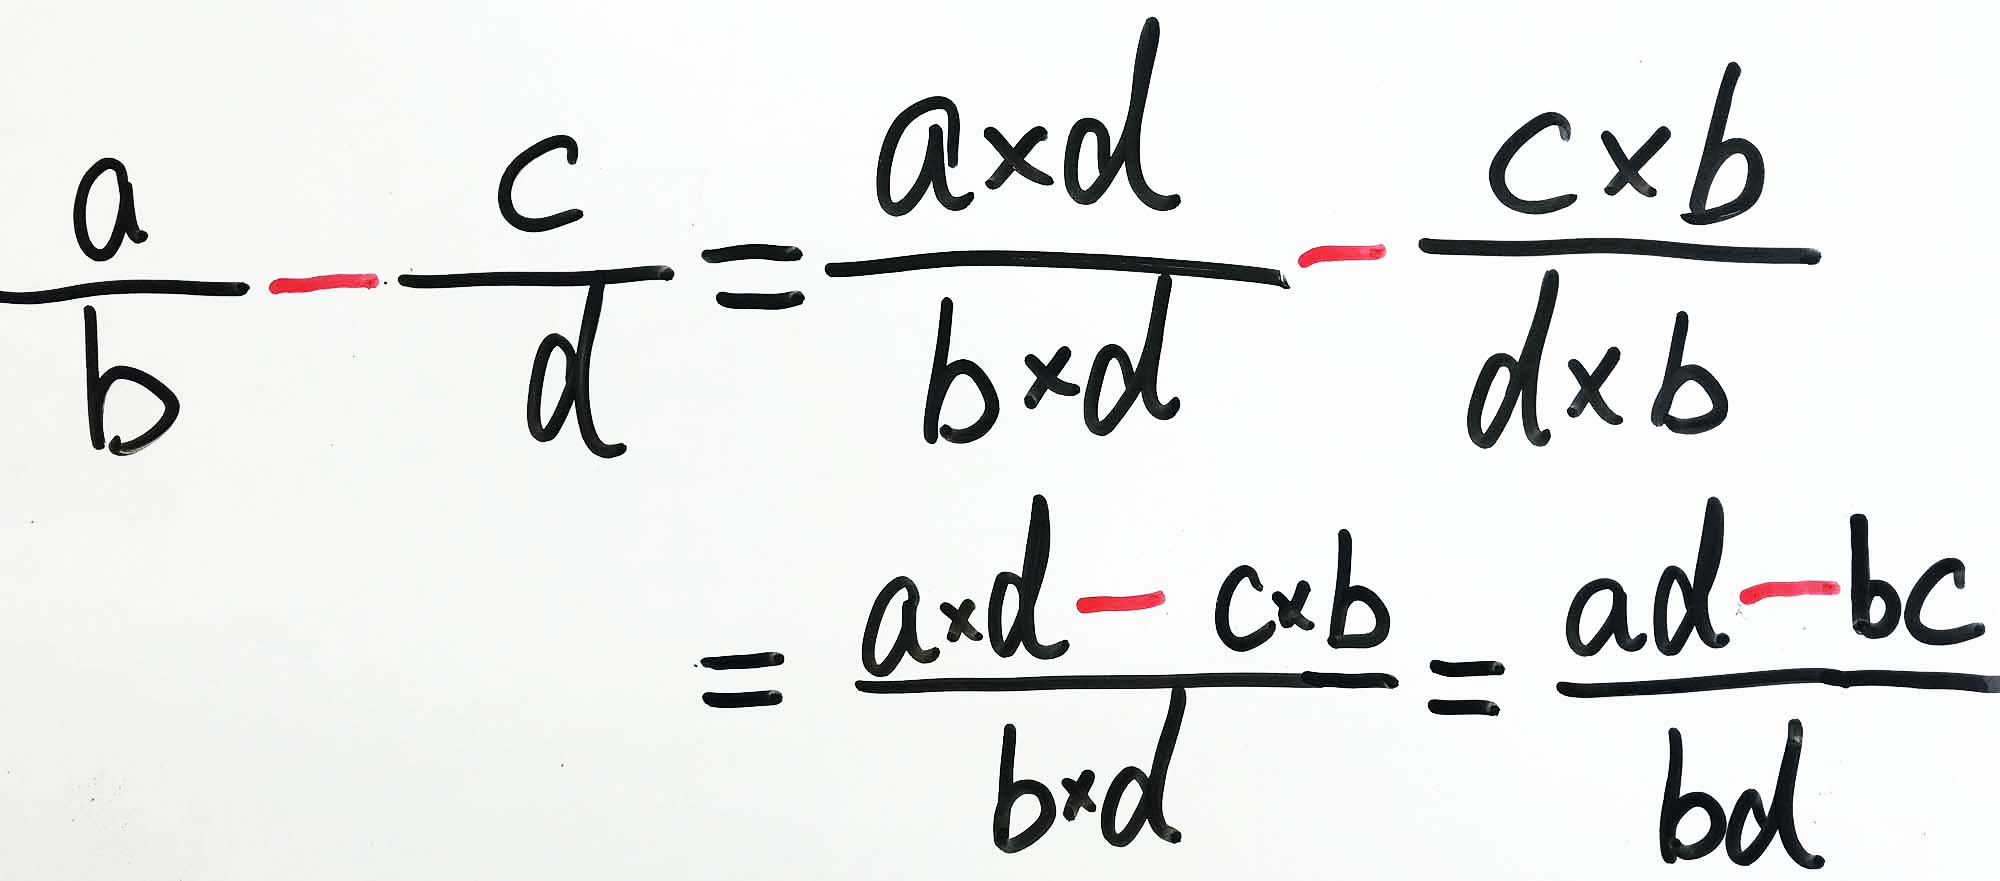 a/b - c/d = a×d/b×d - c×b/d×b
= a×d - c×b/b×d = ad - bc/bd